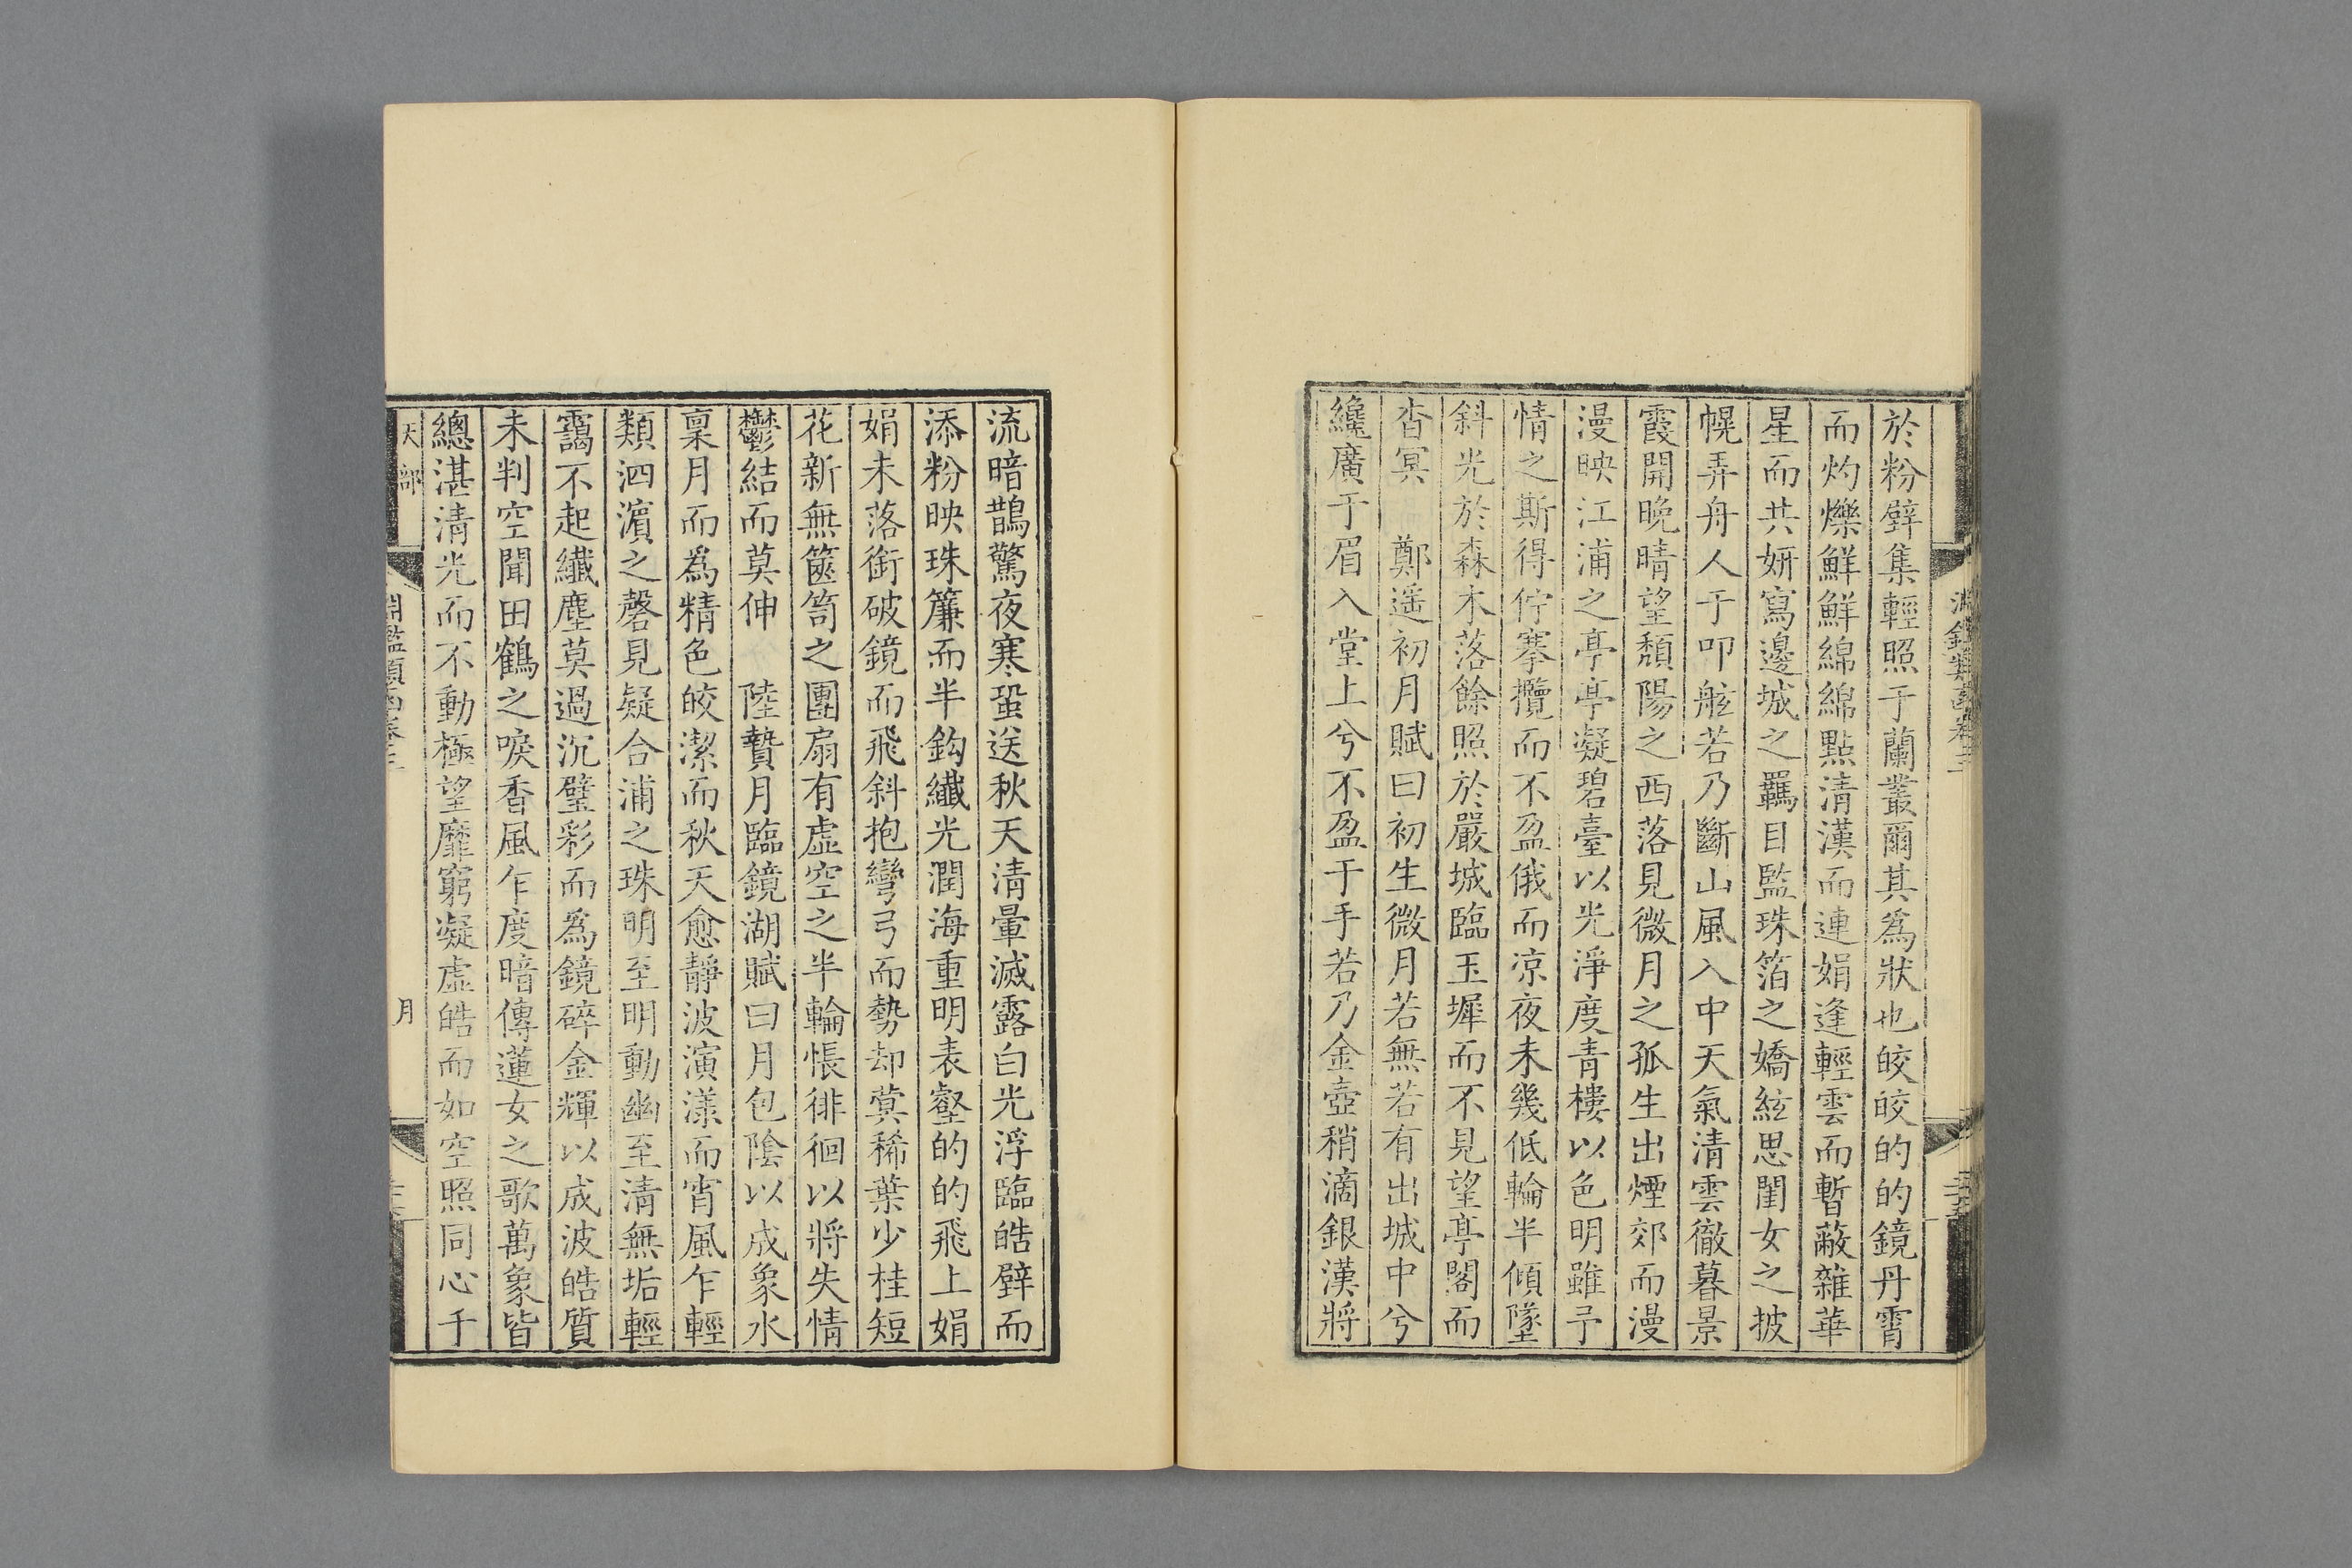 於粉壁集輕照于蘭叢爾其爲狀也皎皎的的鏡丹霄
而灼爍鮮鮮綿綿點清漢而連娟逢輕雲而暫蔽雜華
星而共妍寫邊城之羈目監珠箔之嬌絃思閨女之披
幌弄舟人于叩舷若乃斷山風入中天氣清雲徹暮景
霞開晚晴望頹陽之西落見微月之孤生出煙郊而漫
漫映江浦之亭亭凝碧臺以光淨度青樓以色明雖予
情之斯得佇搴攬而不盈俄而凉夜未幾低輪半傾墜
斜光於森木落餘照於嚴城臨玉墀而不見望亭閣而
杳冥 鄭遥初月賦曰初生微月若無若有出城中兮
纔廣于眉入堂上兮不盈于手若乃金壺稍滴銀漢將
流暗鵲驚夜寒蛩送秋天清暈滅露白光浮臨皓壁而
添粉映珠簾而半鈎纎光潤海重明表壑的的飛上娟
娟未落銜破鏡而飛斜抱彎弓而勢却蓂稀葉少桂短
花新無篋笥之團扇有虛空之半輪悵徘徊以將失情
鬱結而莫伸 陸贄月臨鏡湖賦曰月包陰以成象水
稟月而爲精色皎潔而秋天愈靜波演漾而宵風乍輕
類泗濵之磬見疑合浦之珠明至明動幽至清無垢輕
靄不起纎塵莫過沉璧彩而爲鏡碎金輝以成波皓質
未判空聞田鶴之唳香風乍度暗傳蓮女之歌萬象皆
總湛清光而不動極望靡窮凝虛皓而如空照同心于
天部
淵鑑類函卷三
月